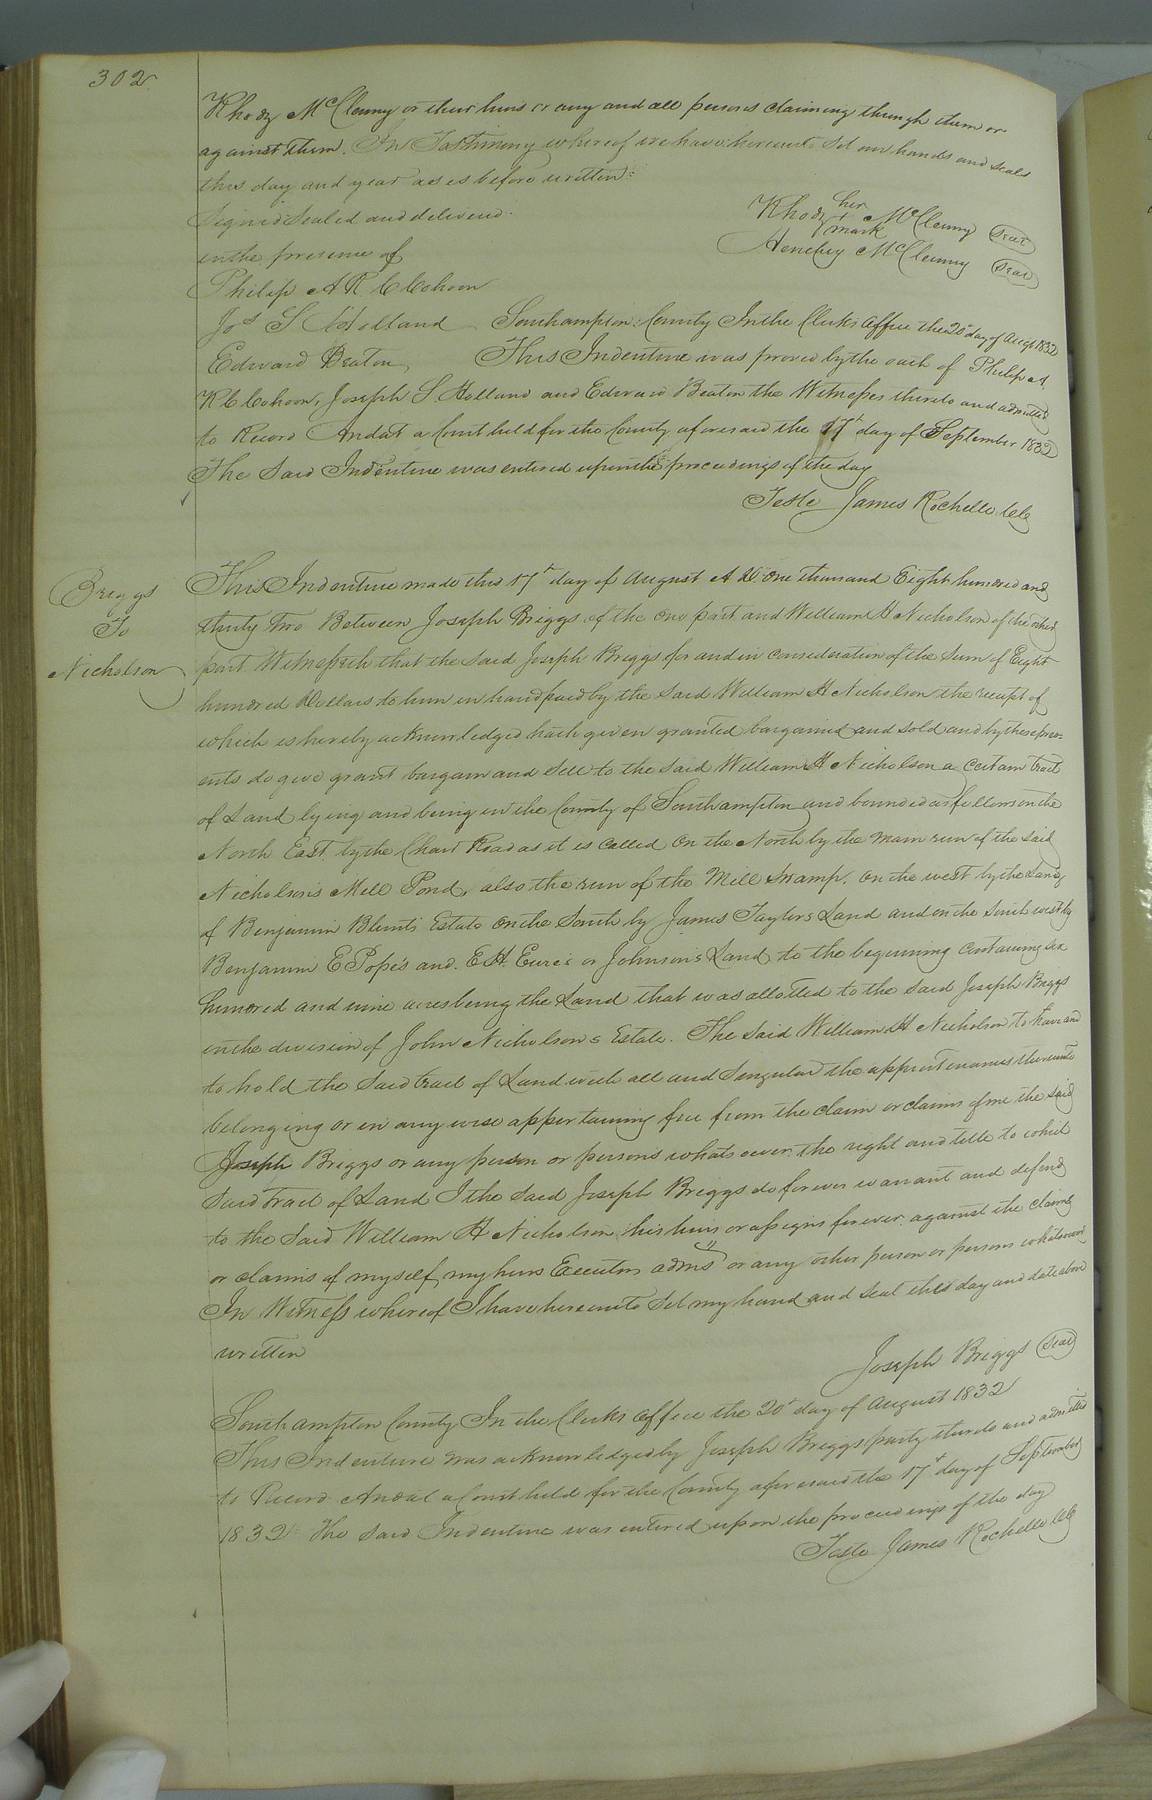 302
Rhody McClenny or their heirs or any and all persons claiming through them or
against them. In Testimony whereof we have hereunto Set our hands and seals
this day and year as is before written:
Signed Sealed and delivered
in the presence of
Philip A R C Cohoon
Jos S Holland
Edward Beaton
Rhody her mark McClenny Seal
McClenny Seal
Southampton County In the Clerks Office the 20th day of Augt 1832
This Indenture was proved by the oath of Philip A
R C Cohoon, Joseph S. Holland and Edward Beaton the Witnesses thereto and admitted
to Record And at a Court held for the County aforesaid the 17th day of September 1832
The Said Indenture was entered upon the proceedings of the day
Teste James Rochelle Clk
Briggs
To
Nicholson
This Indenture made this 17th day of August A D One thousand Eight hundred and
thirty two Between Joseph Briggs of the one part and William H Nicholson of the other
part Witnesseth that the said Joseph Briggs for and in consideration of the Sum of Eight
hundred Dollars to him in hand paid by the Said William H Nicholson the receipt of
which is hereby acknowledged hath given granted bargained and sold and by these pres-
ents do give grant bargain and Sell to the Said William H Nicholson a Certain tract
of Land lying and being in the County of Southampton and bounded as follows on the
North East by the Road as it is called On the North by the main run of the Said
Nicholson's Mill Pond, also the run of the Mill Swamp. On the west by the Land
of Benjamin Blunts Estate On the South by James Taylors Land and on the South west by
Benjamin E Pope's and E. H. Eure's or Johnson's Land to the beginning Containing Six
hundred and nine acres being the Land that was allotted to the Said Joseph Briggs
in the division of John Nicholson's Estate. The Said William H Nicholson to have and
to hold the Said tract of Land with all and Singular the appurtenances thereunto
belonging or in any wise appertaining free from the claim or claims of me the Said
Joseph Briggs or any person or persons whatsoever the right and title to which
Said tract of Land I the Said Joseph Briggs do forever warrant and defend
to the Said William H Nicholson his heirs or assigns forever against the claim
or claims of myself, my heirs Executors adms or any other person or persons whatsoever
In Witness whereof I have hereunto Set my hand and Seal this day and date above
written
Joseph Briggs Seal
Southampton County In the Clerks Office the 20th day of August 1832
This Indenture was acknowledged by Joseph Briggs party thereto and admitted
to Record And at a Court held for the County aforesaid the 17th day of September
1832 The Said Indenture was entered upon the proceedings of the day
Teste James Rochelle Clk